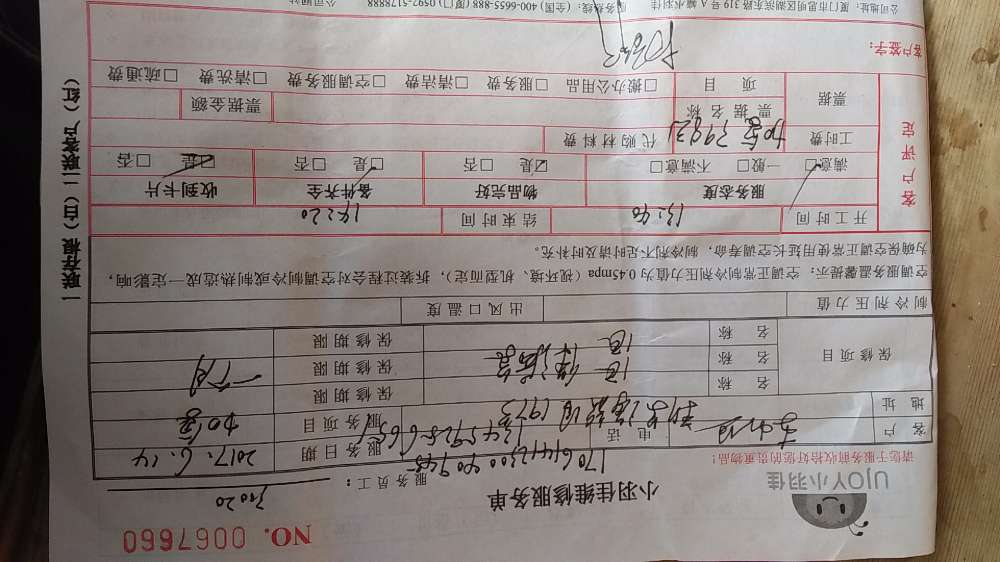 NO. 0067660
UJOY小羽佳
小羽佳维修服务单
服务员工: 31020
请您于服务前收拾好您的贵重物品!
客户 电话 服务日期 2017.6.14
地址 服务项目 加氨
保修项目
名称 保修期限
名称 保修期限 一个月
名称 保修期限
制冷剂压力值 出风口温度
空调服务温馨提示:空调正常制冷剂压力值为0.45mpa(视环境、机型而定),拆装过程会对空调制冷或制热造成一定影响,
为确保空调正常使用延长空调寿命,制冷剂不足时请及时补充。
开工时间 13:40 结束时间 14:20
客户评定
服务态度 物品完好 备件齐全 收到卡片
满意□ 一般□ 不满意□ 是☑ 否□ 是□ 否□ 是☑ 否□
工时费 代购材料费
票据 票据名称 票据金额
项目 □搬办公用品 □服务费 □清洁费 □空调服务费 □清洗费 □疏通费
客户签字:
公司地址:厦门市思明区湖滨东路319号A幢 服务热线:(全国)400-6655-888 (厦门)0592-5178888 公司网站
一联存根(白)二联客户(红)